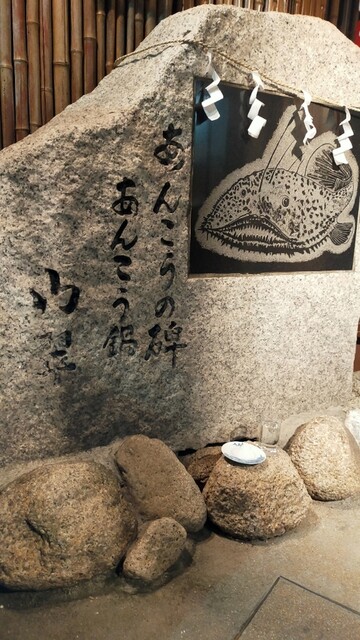 あんこうの碑
あんこう鍋